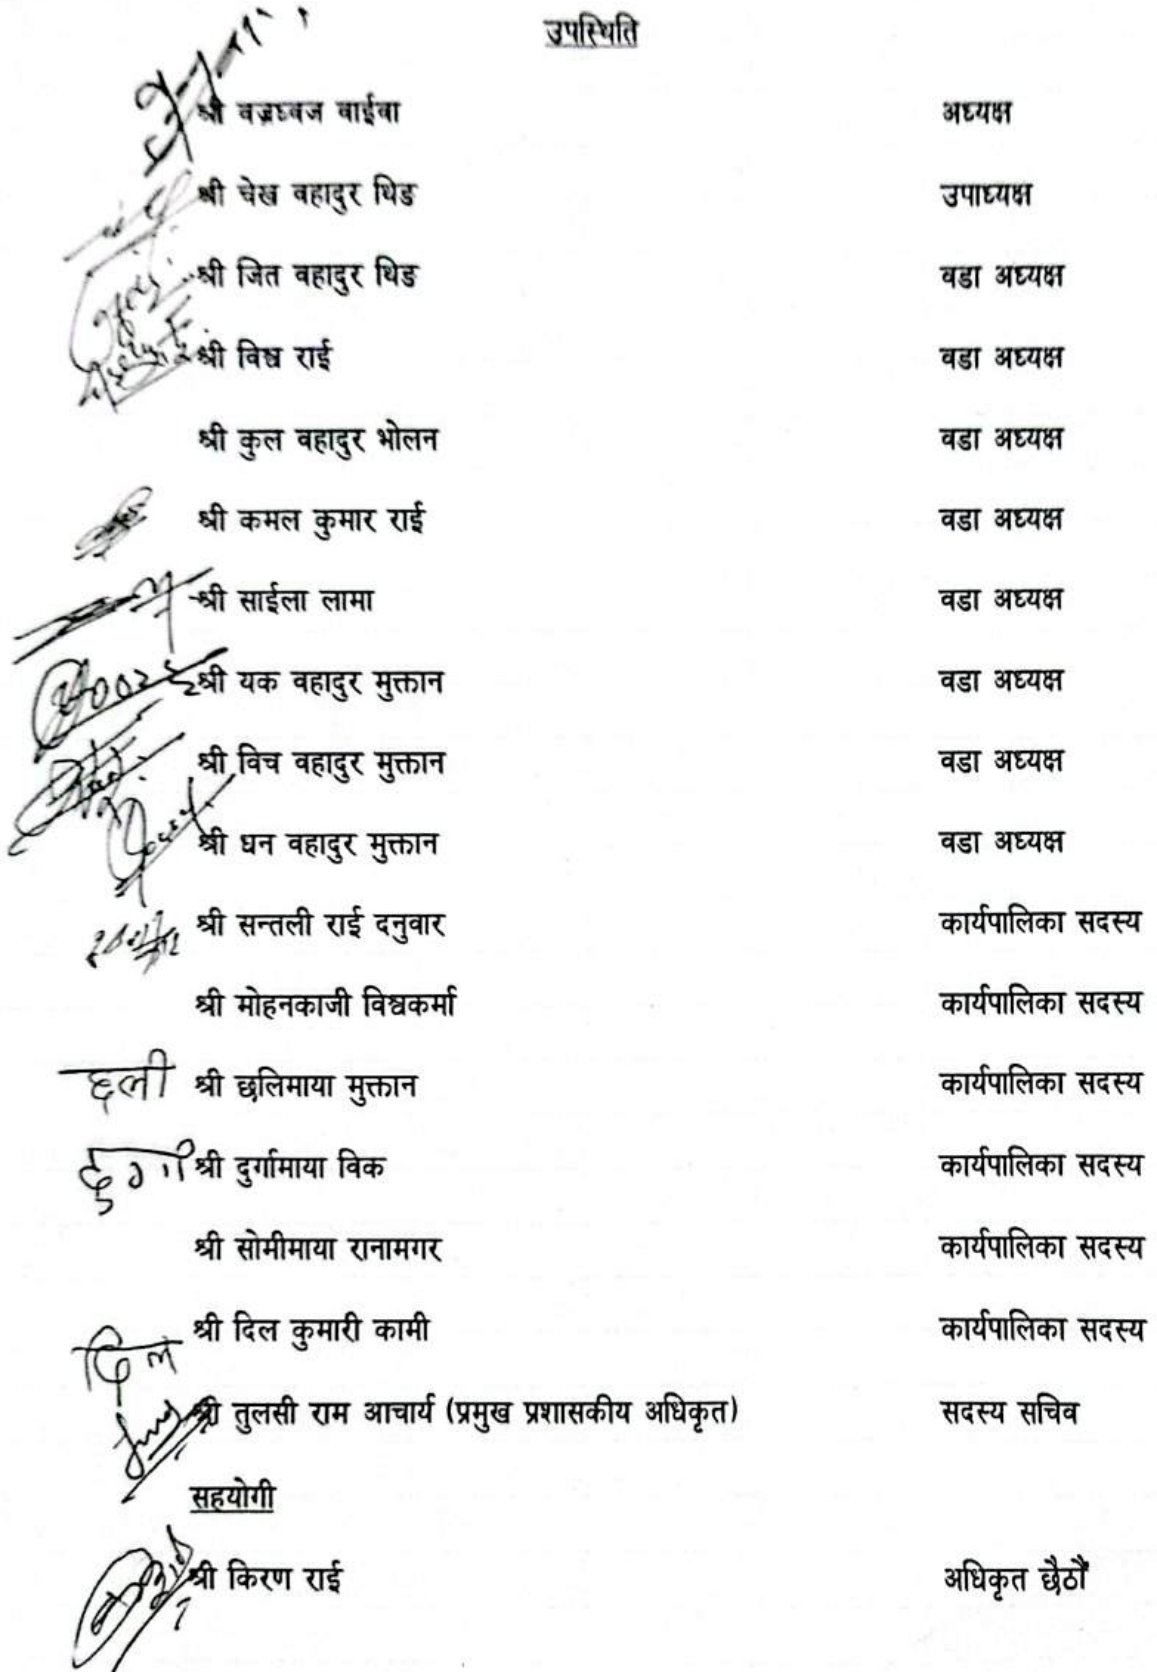 उपस्थिति
श्री वज्रध्वज वाईवा अध्यक्ष
श्री चेख वहादुर थिङ उपाध्यक्ष
श्री जित वहादुर थिङ वडा अध्यक्ष
श्री विश्व राई वडा अध्यक्ष
श्री कुल वहादुर भोलन वडा अध्यक्ष
श्री कमल कुमार राई वडा अध्यक्ष
श्री साईला लामा वडा अध्यक्ष
श्री यक वहादुर मुक्तान वडा अध्यक्ष
श्री विच वहादुर मुक्तान वडा अध्यक्ष
श्री धन वहादुर मुक्तान वडा अध्यक्ष
श्री सन्तली राई दनुवार कार्यपालिका सदस्य
श्री मोहनकाजी विश्वकर्मा कार्यपालिका सदस्य
छली श्री छलिमाया मुक्तान कार्यपालिका सदस्य
दुर्गा श्री दुर्गामाया विक कार्यपालिका सदस्य
श्री सोमीमाया रानामगर कार्यपालिका सदस्य
दिल श्री दिल कुमारी कामी कार्यपालिका सदस्य
श्री तुलसी राम आचार्य (प्रमुख प्रशासकीय अधिकृत) सदस्य सचिव
सहयोगी
श्री किरण राई अधिकृत छैठौं